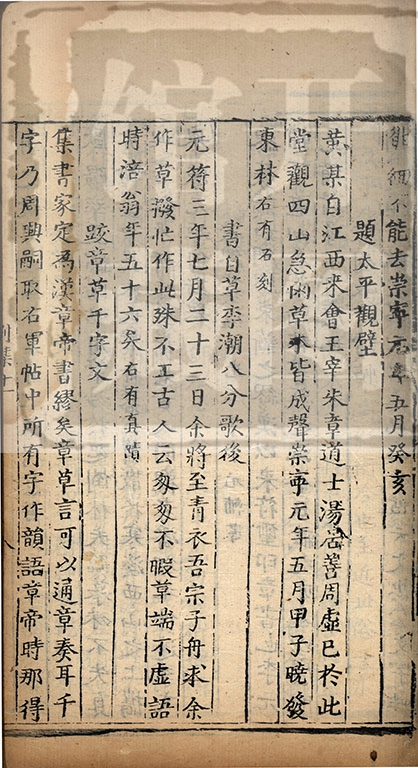 能去崇寧元年五月癸亥
題太平觀壁
黃某自江西來會王宰朱章道士湯居善周虛已於此
堂觀四山急雨草木皆成聲崇寧元年五月甲子晚發
東林右有石刻
書自草李潮八分歌後
元符三年七月二十三日余將至青衣吾宗子舟求余
作草撥忙作此殊不工古人云匆匆不暇草端不虛語
時涪翁年五十六矣右有真蹟
跋章草千字文
集書家定為漢章帝書繆矣章草言可以通章奏耳千
字乃周興嗣取右軍帖中所有字作韻語章帝時那得